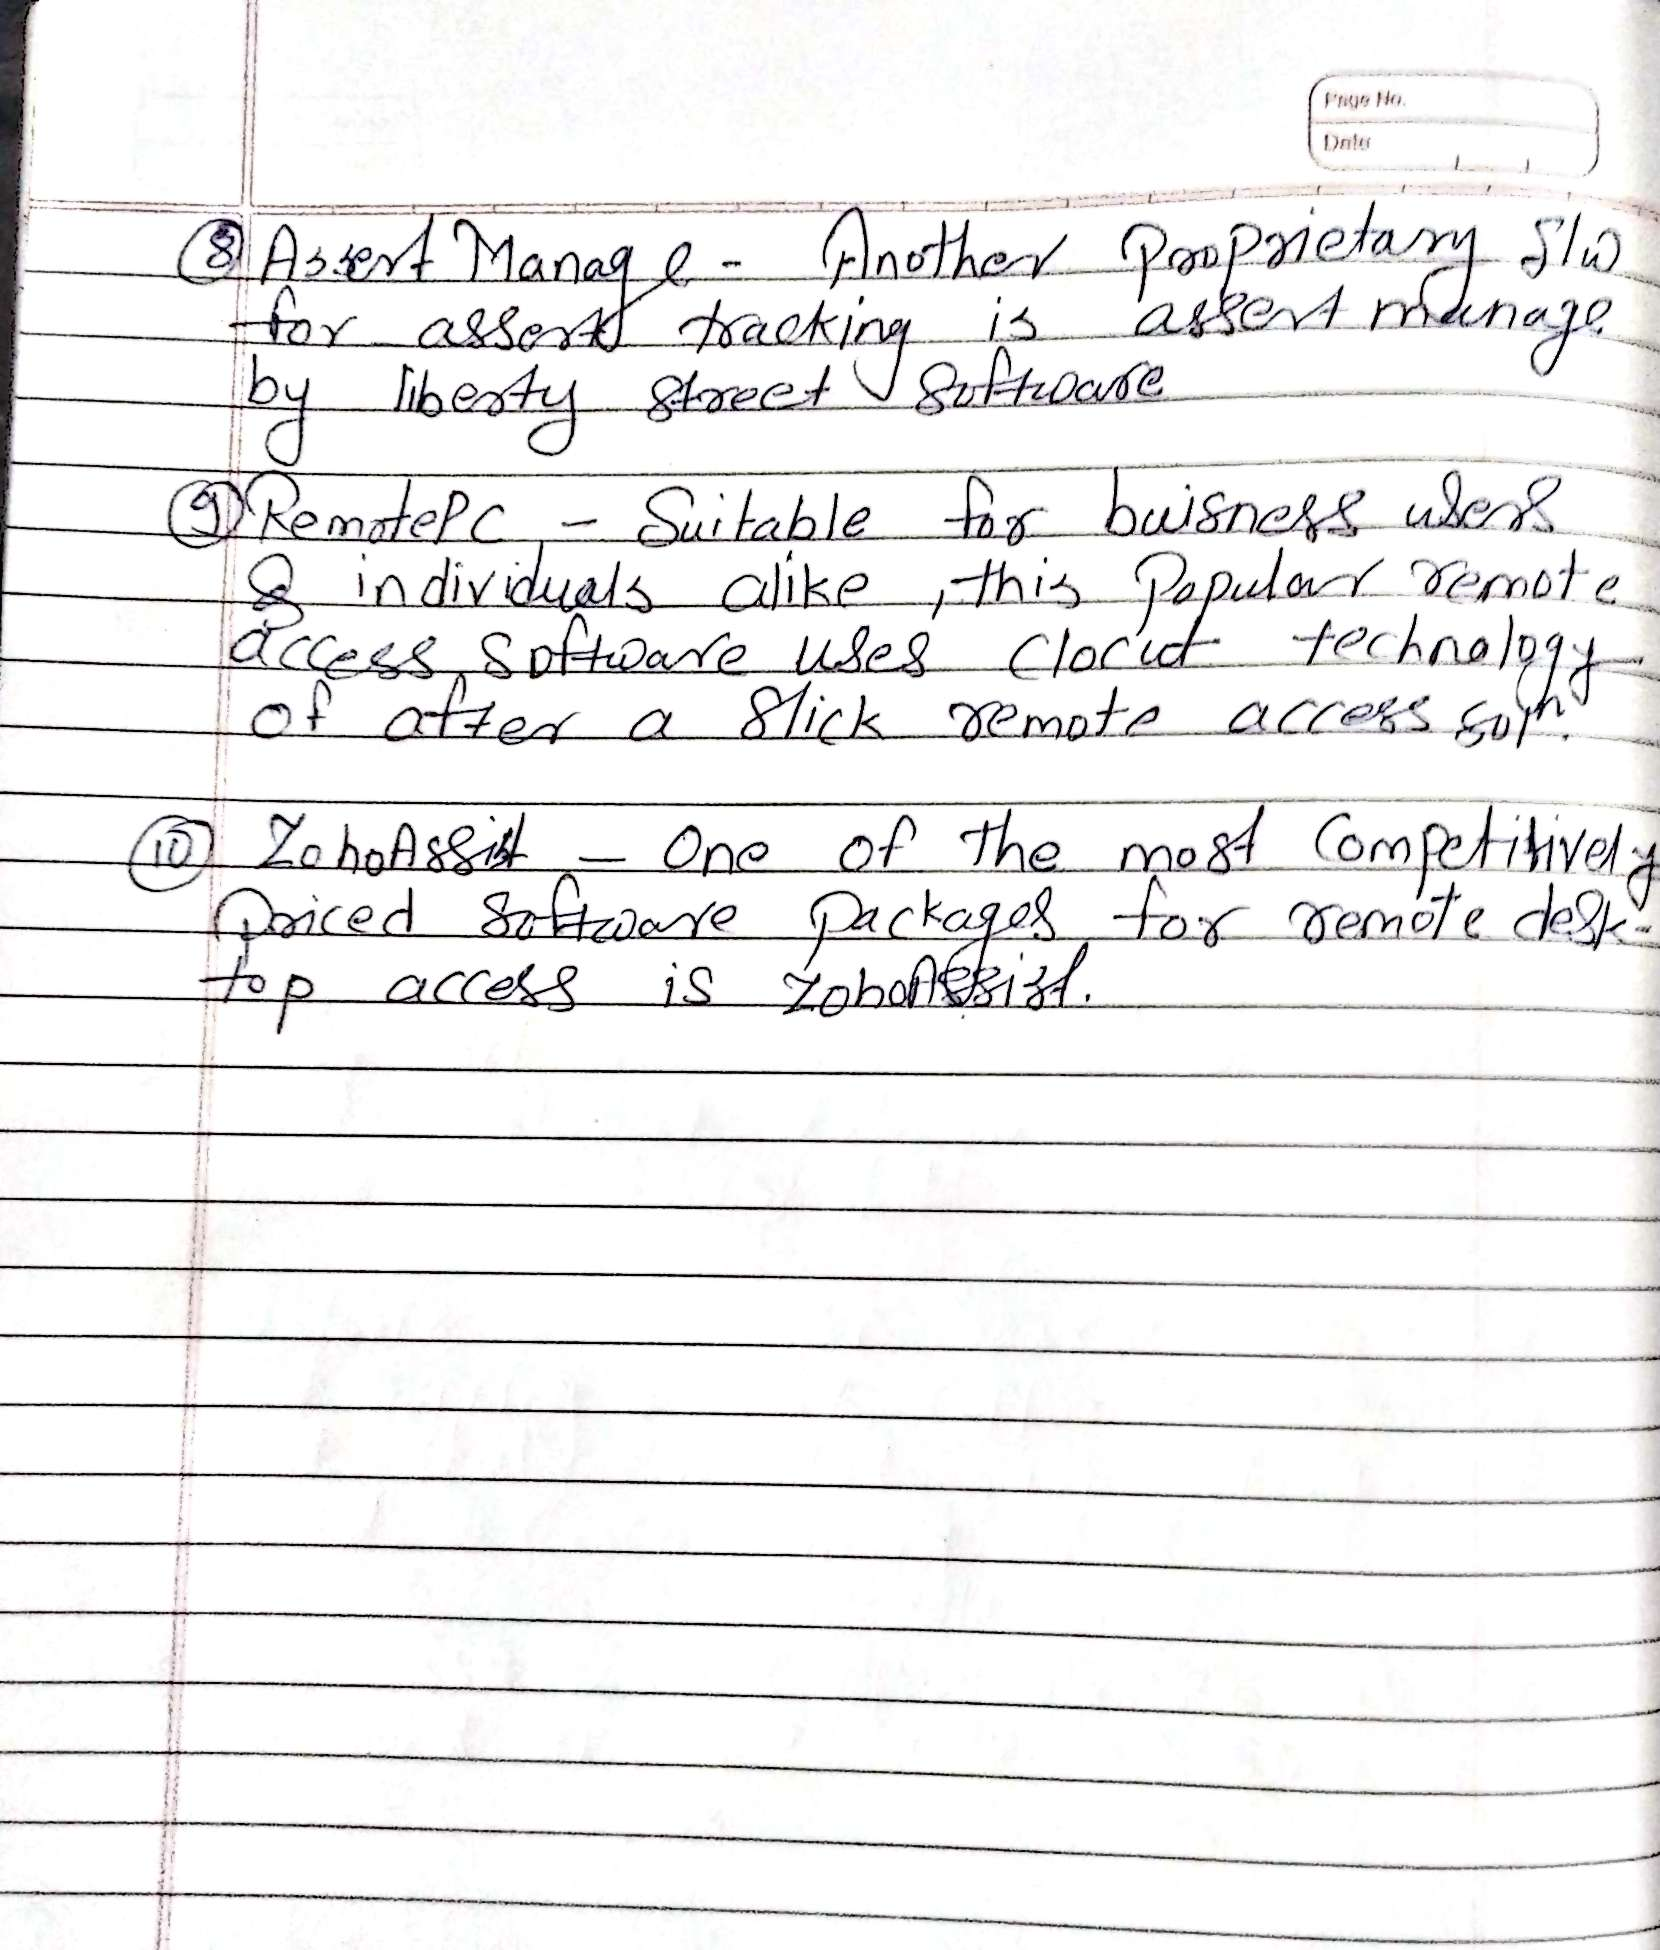 Page No.
Date
⑧ Assert Manage - Another Proprietary S/w
for assert tracking is assert manage
by liberty street Software
⑨ RemotePC - Suitable for buisness users
& individuals alike, this Popular remote
access software uses cloud technology
of after a slick remote access soln.
⑩ ZohoAssist - One of the most Competitively
priced software packages for remote desk-
top access is ZohoAssist.